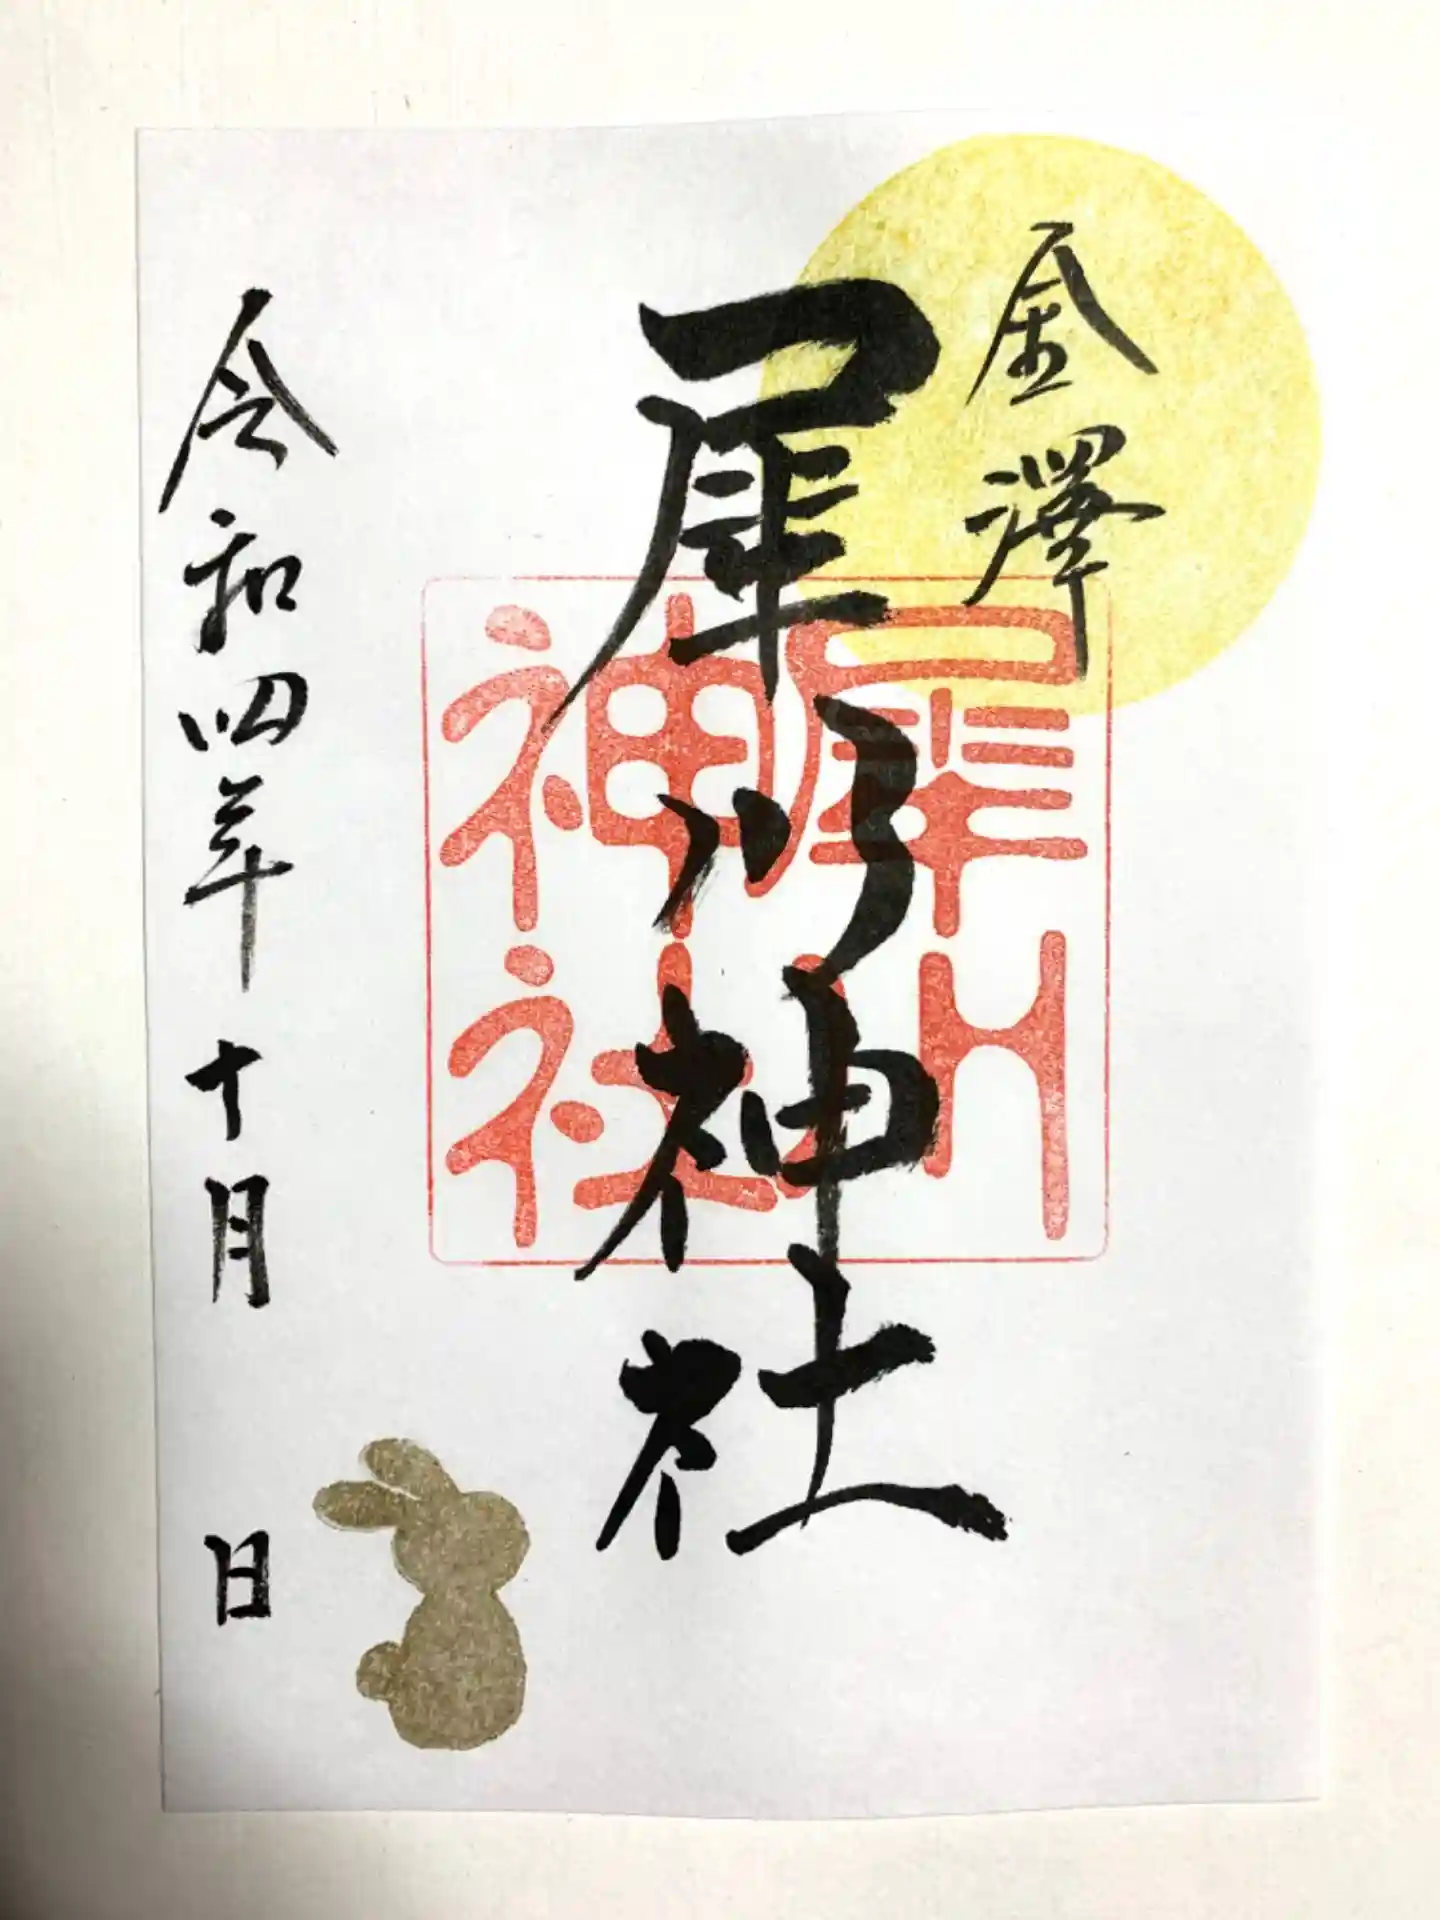 金澤
犀川神社
犀川
神社
令和四年十月 日